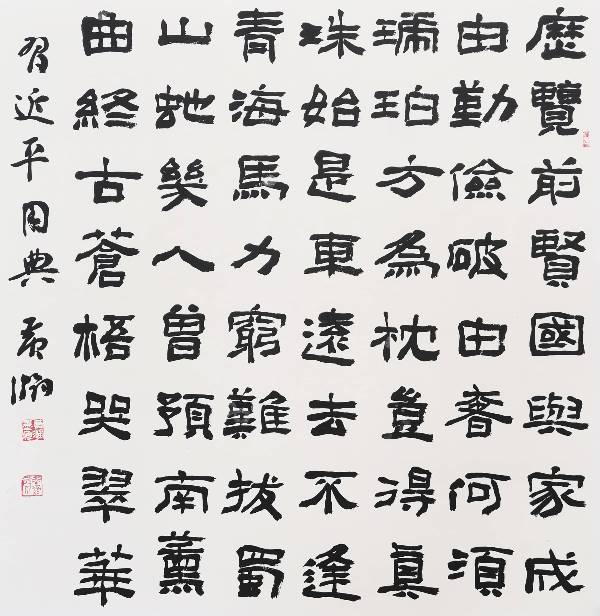 歷覽前賢國與家成
由勤儉破由奢何須
琥珀方為枕豈得真
珠始是車遠去不逢
青海馬力窮難拔蜀
山虵幾人曾預南薰
曲終古蒼梧哭翠華
習近平用典